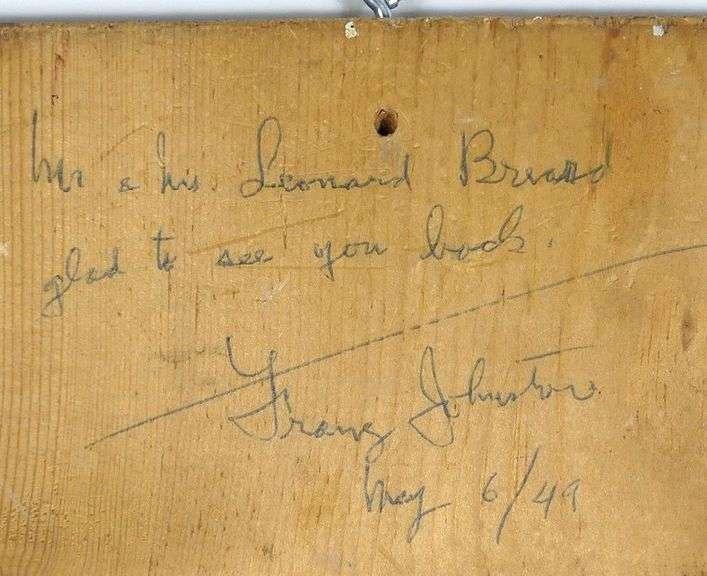 Mr & Mrs. Leonard
glad to see you back.
Franz Johnston
May 6/49